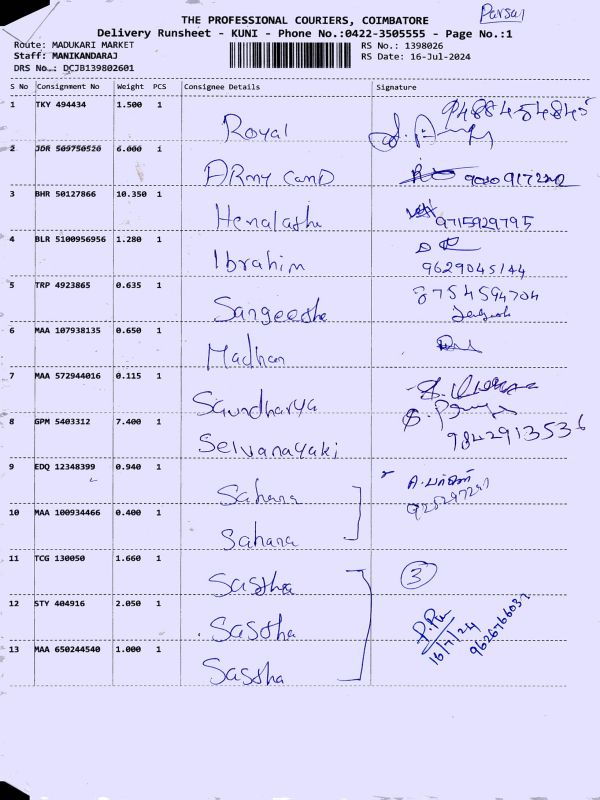 Parsar
THE PROFESSIONAL COURIERS, COIMBATORE
Delivery Runsheet - KUNI - Phone No.:0422-3505555 - Page No.:1
Route: MADUKARI MARKET RS No.: 1398026
Staff: MANIKANDARAJ RS Date: 16-Jul-2024
DRS No.: DCJB139802601
S No Consignment No Weight PCS Consignee Details Signature
1 TKY 494434 1.500 1 Royal
2 JDR 509750520 6.000 1 ARMY CamD
3 BHR 50127866 10.350 1 Hemalatha 9715929795
4 BLR 5100956956 1.280 1 Ibrahim 9629045144
5 TRP 4923865 0.635 1 Sangeetha 8754594704
6 MAA 107938135 0.650 1 Madhan
7 MAA 572944016 0.115 1 Saundharya
8 GPM 5403312 7.400 1 Selvanayaki 9842913536
9 EDQ 12348399 0.940 1 Sahana
10 MAA 100934466 0.400 1 Sahana
11 TCG 130050 1.660 1 Sastha 3
12 STY 404916 2.050 1 Sastha 16/7/24
13 MAA 650244540 1.000 1 Sastha